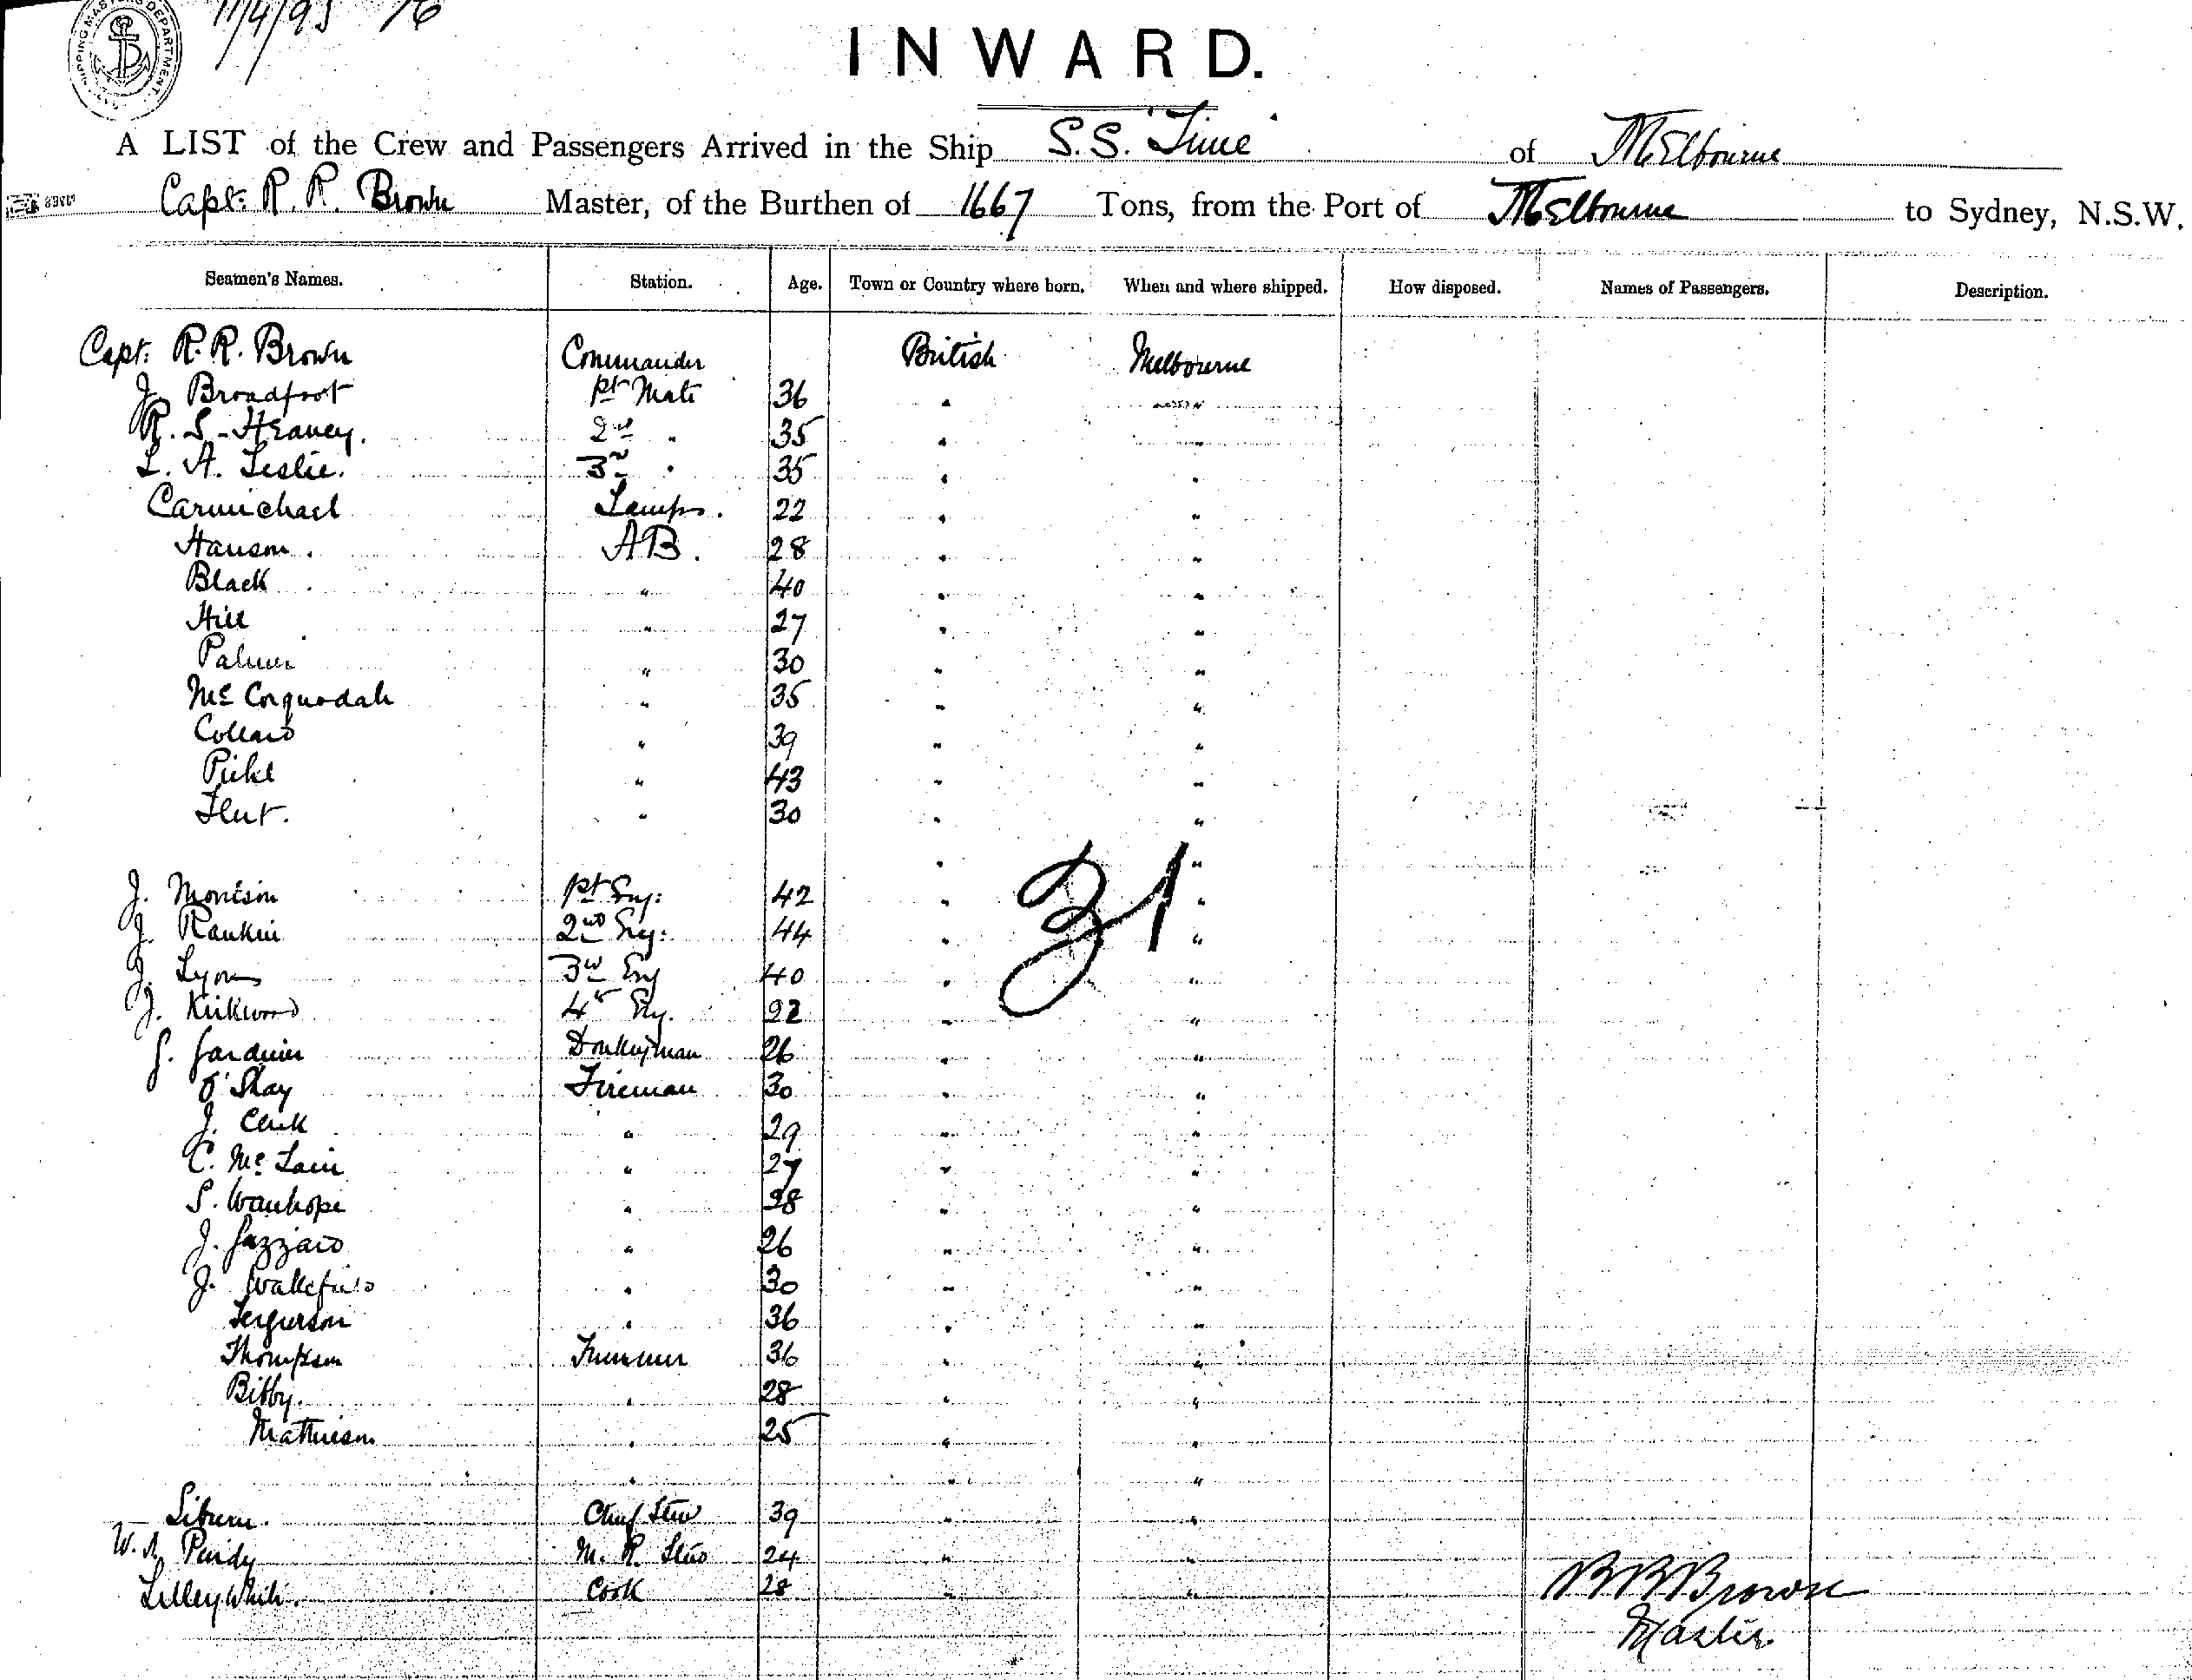 11/4/93 16
SHIPPING MASTERS DEPARTMENT
INWARD.
A LIST of the Crew and Passengers Arrived in the Ship S.S. "Time" of Melbourne
Capt: R. R. Brown Master, of the Burthen of 1667 Tons, from the Port of Melbourne to Sydney, N.S.W.
Seamen's Names. Station. Age. Town or Country where born. When and where shipped. How disposed. Names of Passengers. Description.
Capt: R. R. Brown Commander British Melbourne
J. Broadfoot 1st Mate 36 "
R. S. Heaney. 2nd " 35 "
L. A. Leslie. 3rd " 35 " "
Carmichael Lamps. 22 " "
Hanson. AB. 28 " "
Black " 40 " "
Hill " 27 " "
Palmer " 30 " "
Mc Corquodale " 35 " "
Collard " 39 " "
" 43 " "
" 30 " "
" "
31
J. Morrison 1st Eng: 42 " "
J. Rankin 2nd Eng: 44 " "
J. Lyons 3rd Eng 40 " "
J. Kirkwood 4th Eng. " "
Gardiner Donkeyman 26 " "
O'Shay Fireman 30 " "
J. " 29 " "
C. Mc " 27 " "
S. Wauhope " " "
J. Gazzard " 26 " "
J. Wakefield " 30 " "
Ferguson " 36 " "
Thompson Trimmer 36 " "
Bibby. " 28 " "
Mathieson " 25 " "
" " "
Chief Stew 39 " "
W. A. Purdy M. R. Stew 24 " "
Lilleywhite. Cook 28 " "
R R Brown
Master.